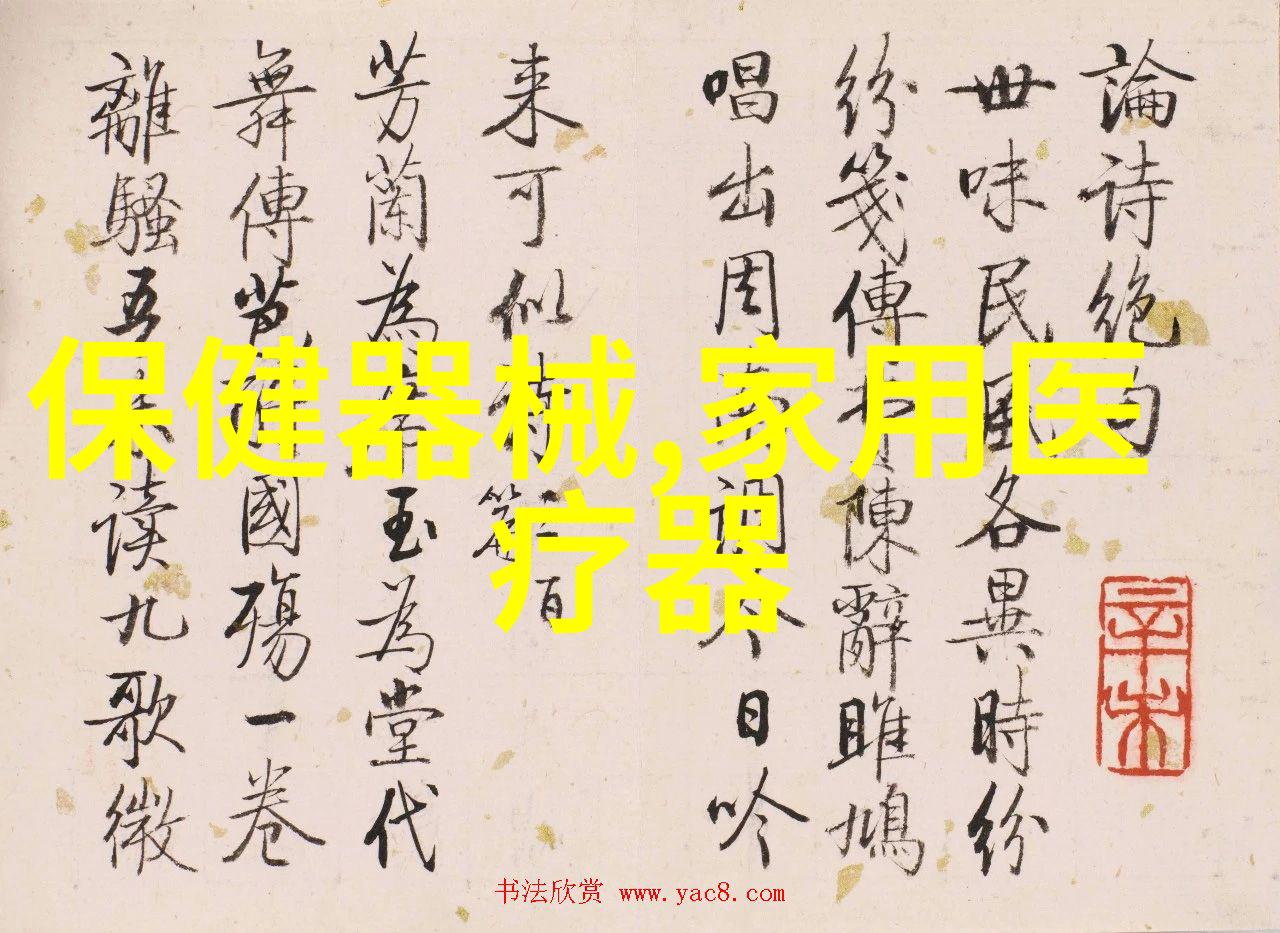 論诗绝句
世味民風各異時紛
紛箋傳陳辭雎鳩
唱出周南調今日吟
来可似篇百
芳蘭為席玉為堂代
舞傳芭禮國殤一卷
離騷五读九歌微
辛未
保健器械,家用医
疗器
书法欣赏 www.yac8.com